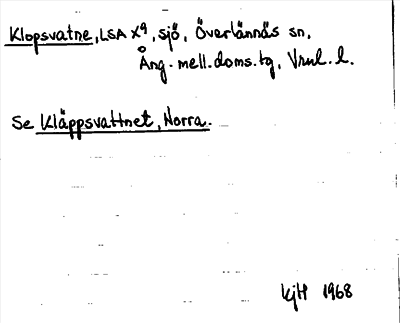 Klopsvatne, LSA X9, sjö, Överlännäs sn.
Ång. mell. doms. tg, Vnl. l.
Se Kläppsvattnet, Norra.
KjH 1968